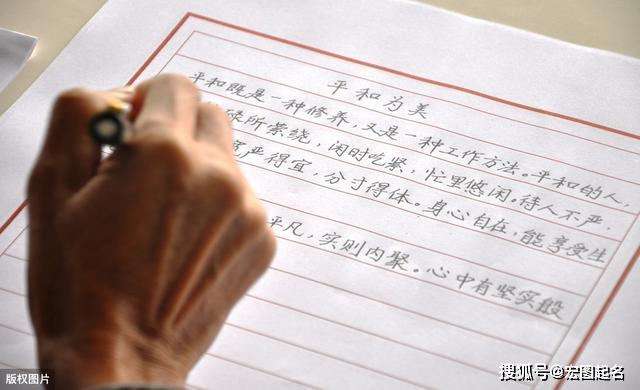 平和为美
平和既是一种修养，又是一种工作方法。平和的人，
碌所萦绕，闲时吃紧，忙里悠闲。待人不严，
宽严得宜，分寸得体。身心自在，能享受生
平凡，实则内聚。心中有坚实般
版权图片
搜狐号@宏图起名